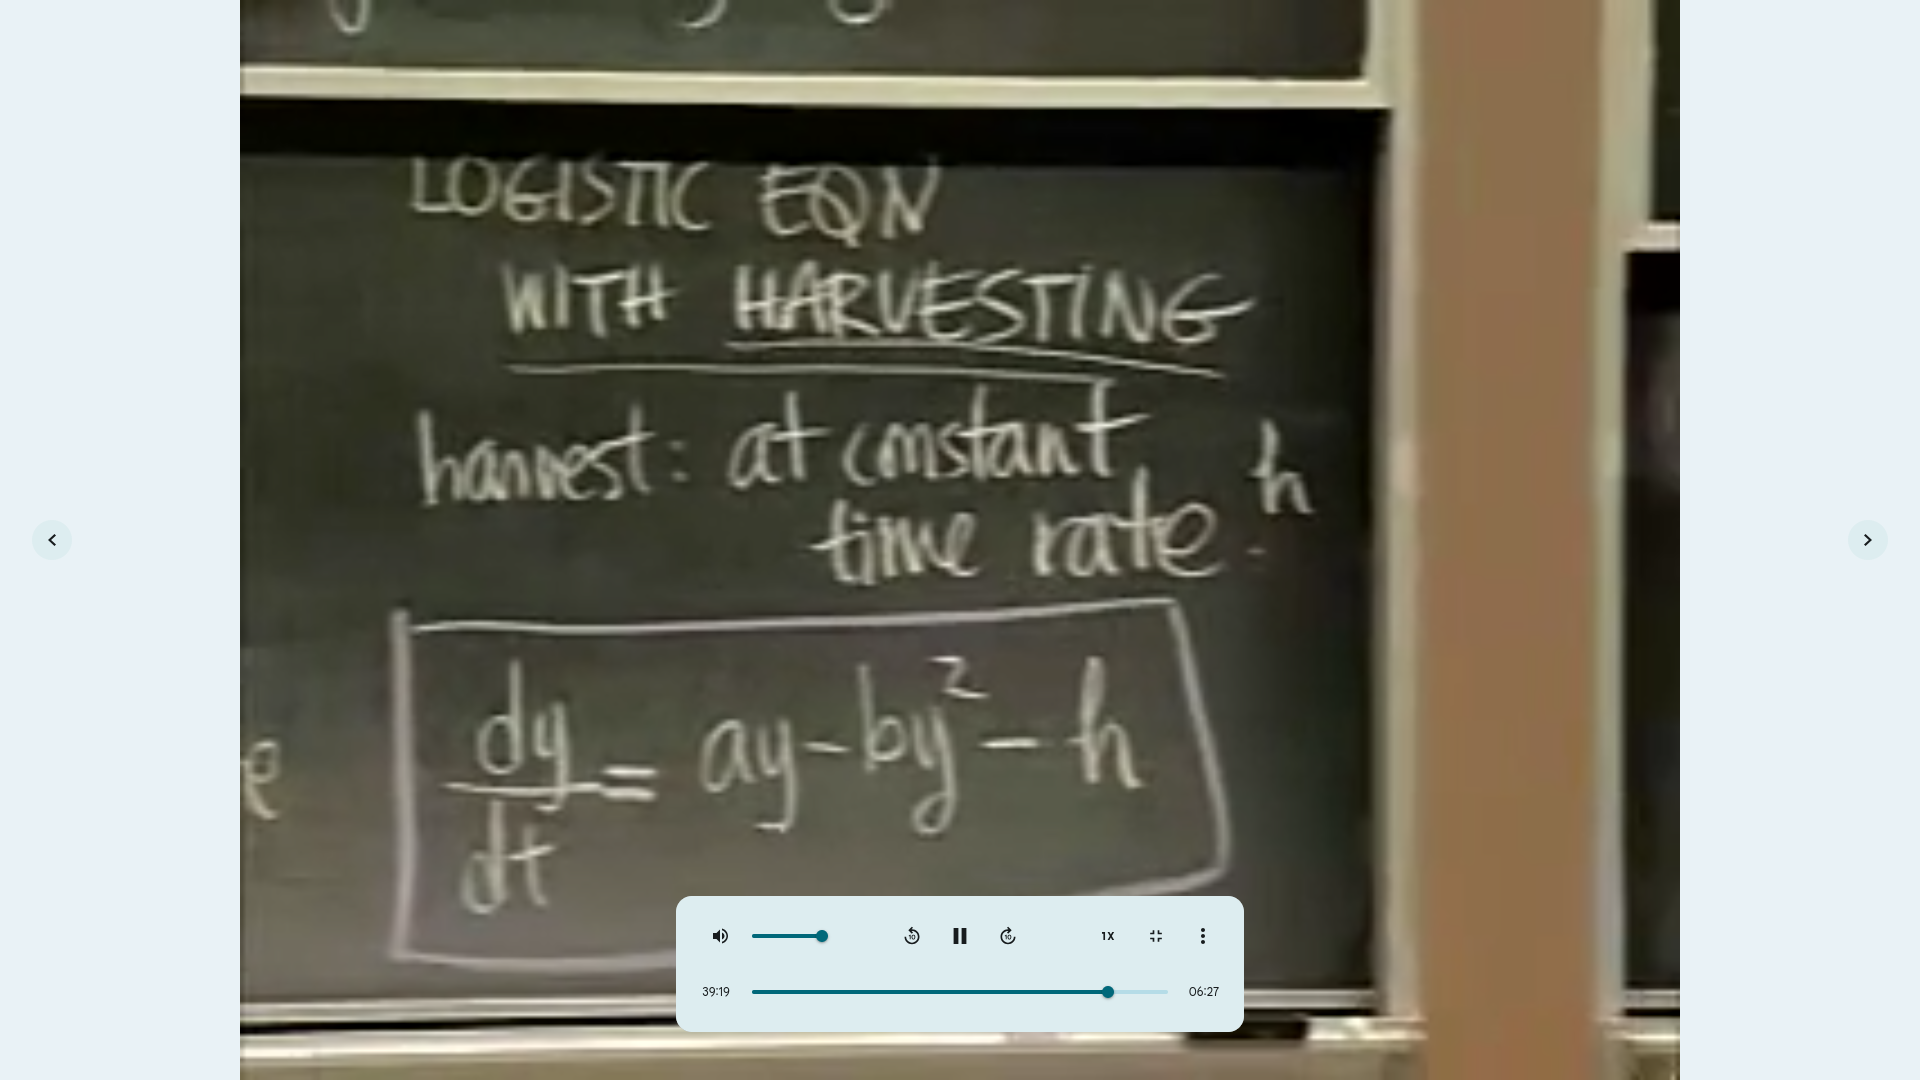 LOGISTIC EQN
WITH HARVESTING
harvest: at constant
time rate h
dy/dt = ay - by² - h
1X
39:19 06:27